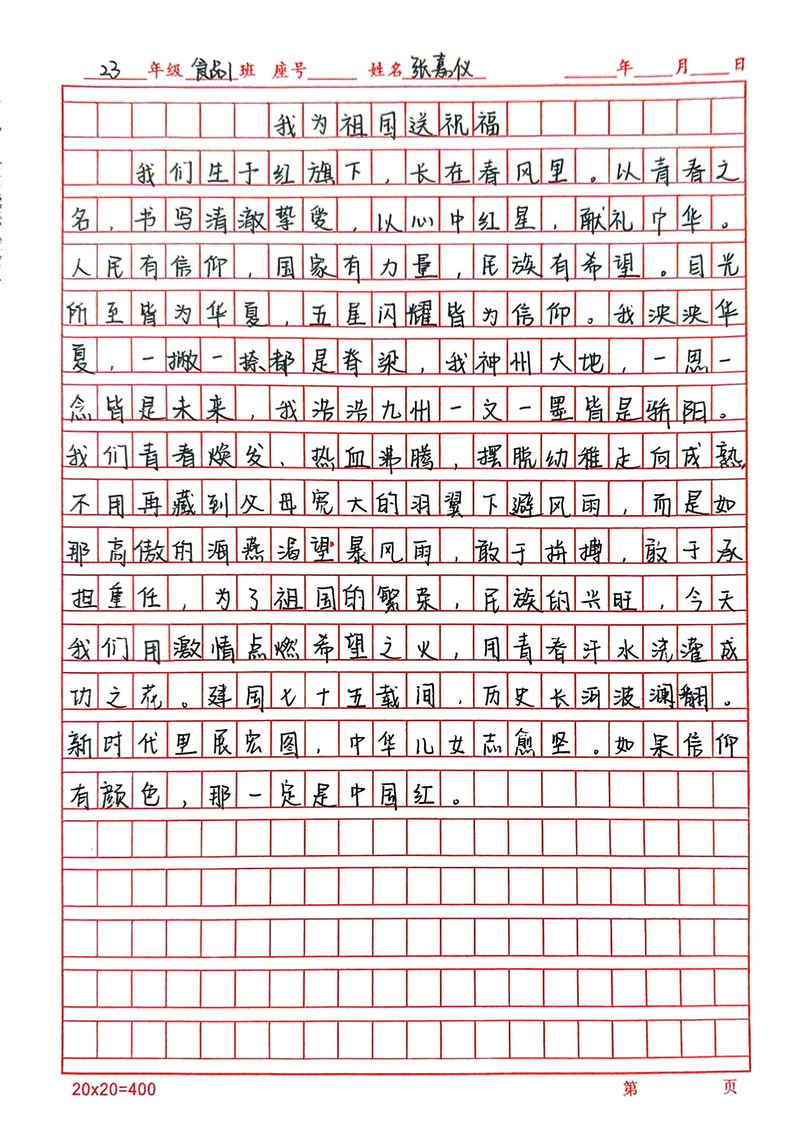 23 年级 食品1 班 座号 姓名 张嘉仪 年 月 日
我为祖国送祝福
我们生于红旗下，长在春风里。以青春之
名，书写清澈挚爱，以心中红星，献礼中华。
人民有信仰，国家有力量，民族有希望。目光
所至皆为华夏，五星闪耀皆为信仰。我泱泱华
夏，一撇一捺都是脊梁，我神州大地，一思一
念皆是未来，我浩浩九州一文一墨皆是骄阳。
我们青春焕发、热血沸腾，摆脱幼稚走向成熟，
不用再藏到父母宽大的羽翼下避风雨，而是如
那高傲的海燕渴望暴风雨，敢于拼搏，敢于承
担重任，为了祖国的繁荣，民族的兴旺，今天
我们用激情点燃希望之火，用青春汗水浇灌成
功之花。建国七十五载间，历史长河波澜翻。
新时代里展宏图，中华儿女志愈坚。如果信仰
有颜色，那一定是中国红。
20x20=400 第 页